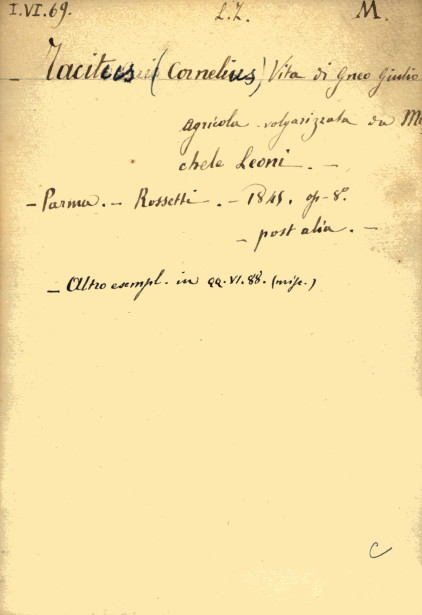 I.VI.69. L.L. M.
Tacitus (Cornelius) Vita di Gneo Giulio
Agricola volgarizzata da Mi
chele Leoni. –
– Parma. – Rossetti. – 1845. op-8°.
– post alia. –
– Altro esempl. in QQ.VI.88. (misc.)
C